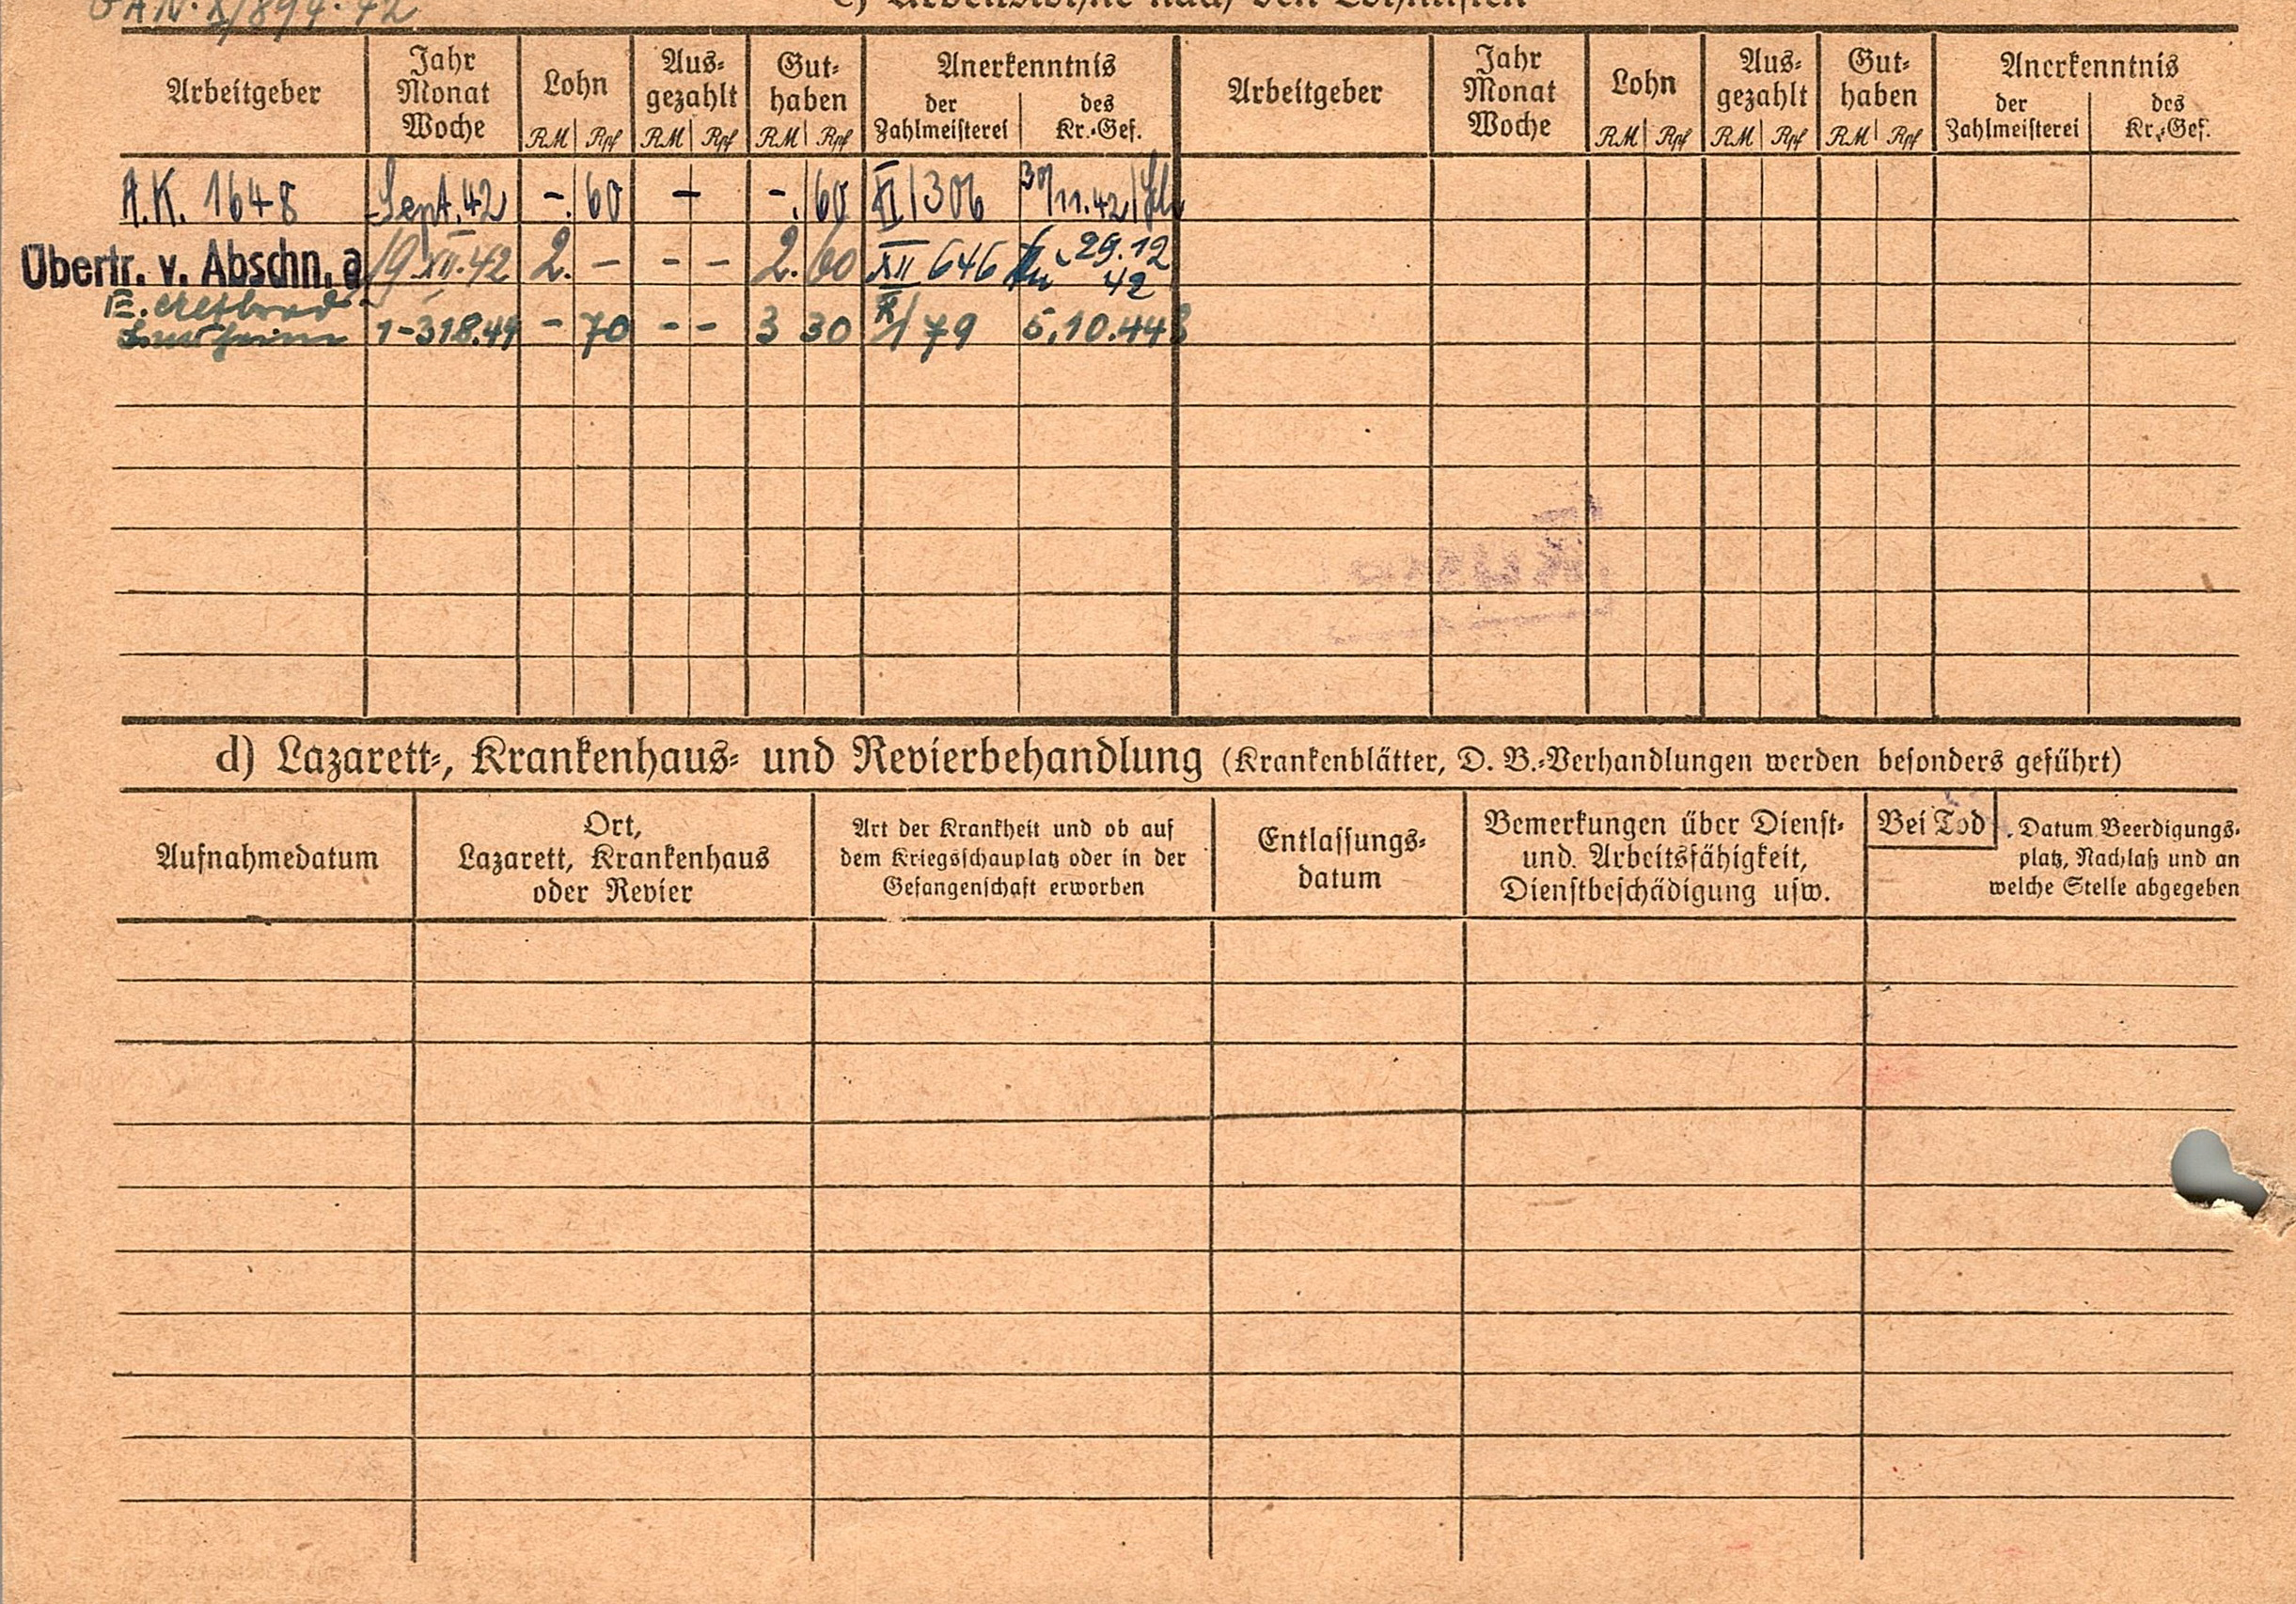 c) Arbeitslöhne nach den Lohnlisten
Arbeitgeber Jahr Monat Woche Lohn RM Rpf Aus- gezahlt RM Rpf Gut- haben RM Rpf Anerkenntnis der Zahlmeisterei des Kr.-Gef. Arbeitgeber Jahr Monat Woche Lohn RM Rpf Aus- gezahlt RM Rpf Gut- haben RM Rpf Anerkenntnis der Zahlmeisterei des Kr.-Gef.
A.K. 1648 Sept. 42 -. 60 - -. 60 XI/306 30/11.42
Übertr. v. Abschn. a 19.XII.42 2. - - - 2. 60 XII 646 29.12 42
1-318.44 - 70 - - 3 30 79 5.10.44
d) Lazarett-, Krankenhaus- und Revierbehandlung (Krankenblätter, D. B.-Verhandlungen werden besonders geführt)
Aufnahmedatum
Ort,
Lazarett, Krankenhaus
oder Revier
Art der Krankheit und ob auf
dem Kriegsschauplatz oder in der
Gefangenschaft erworben
Entlassungs-
datum
Bemerkungen über Dienst-
und Arbeitsfähigkeit,
Dienstbeschädigung usw.
Bei Tod
Datum Beerdigungs-
platz, Nachlaß und an
welche Stelle abgegeben